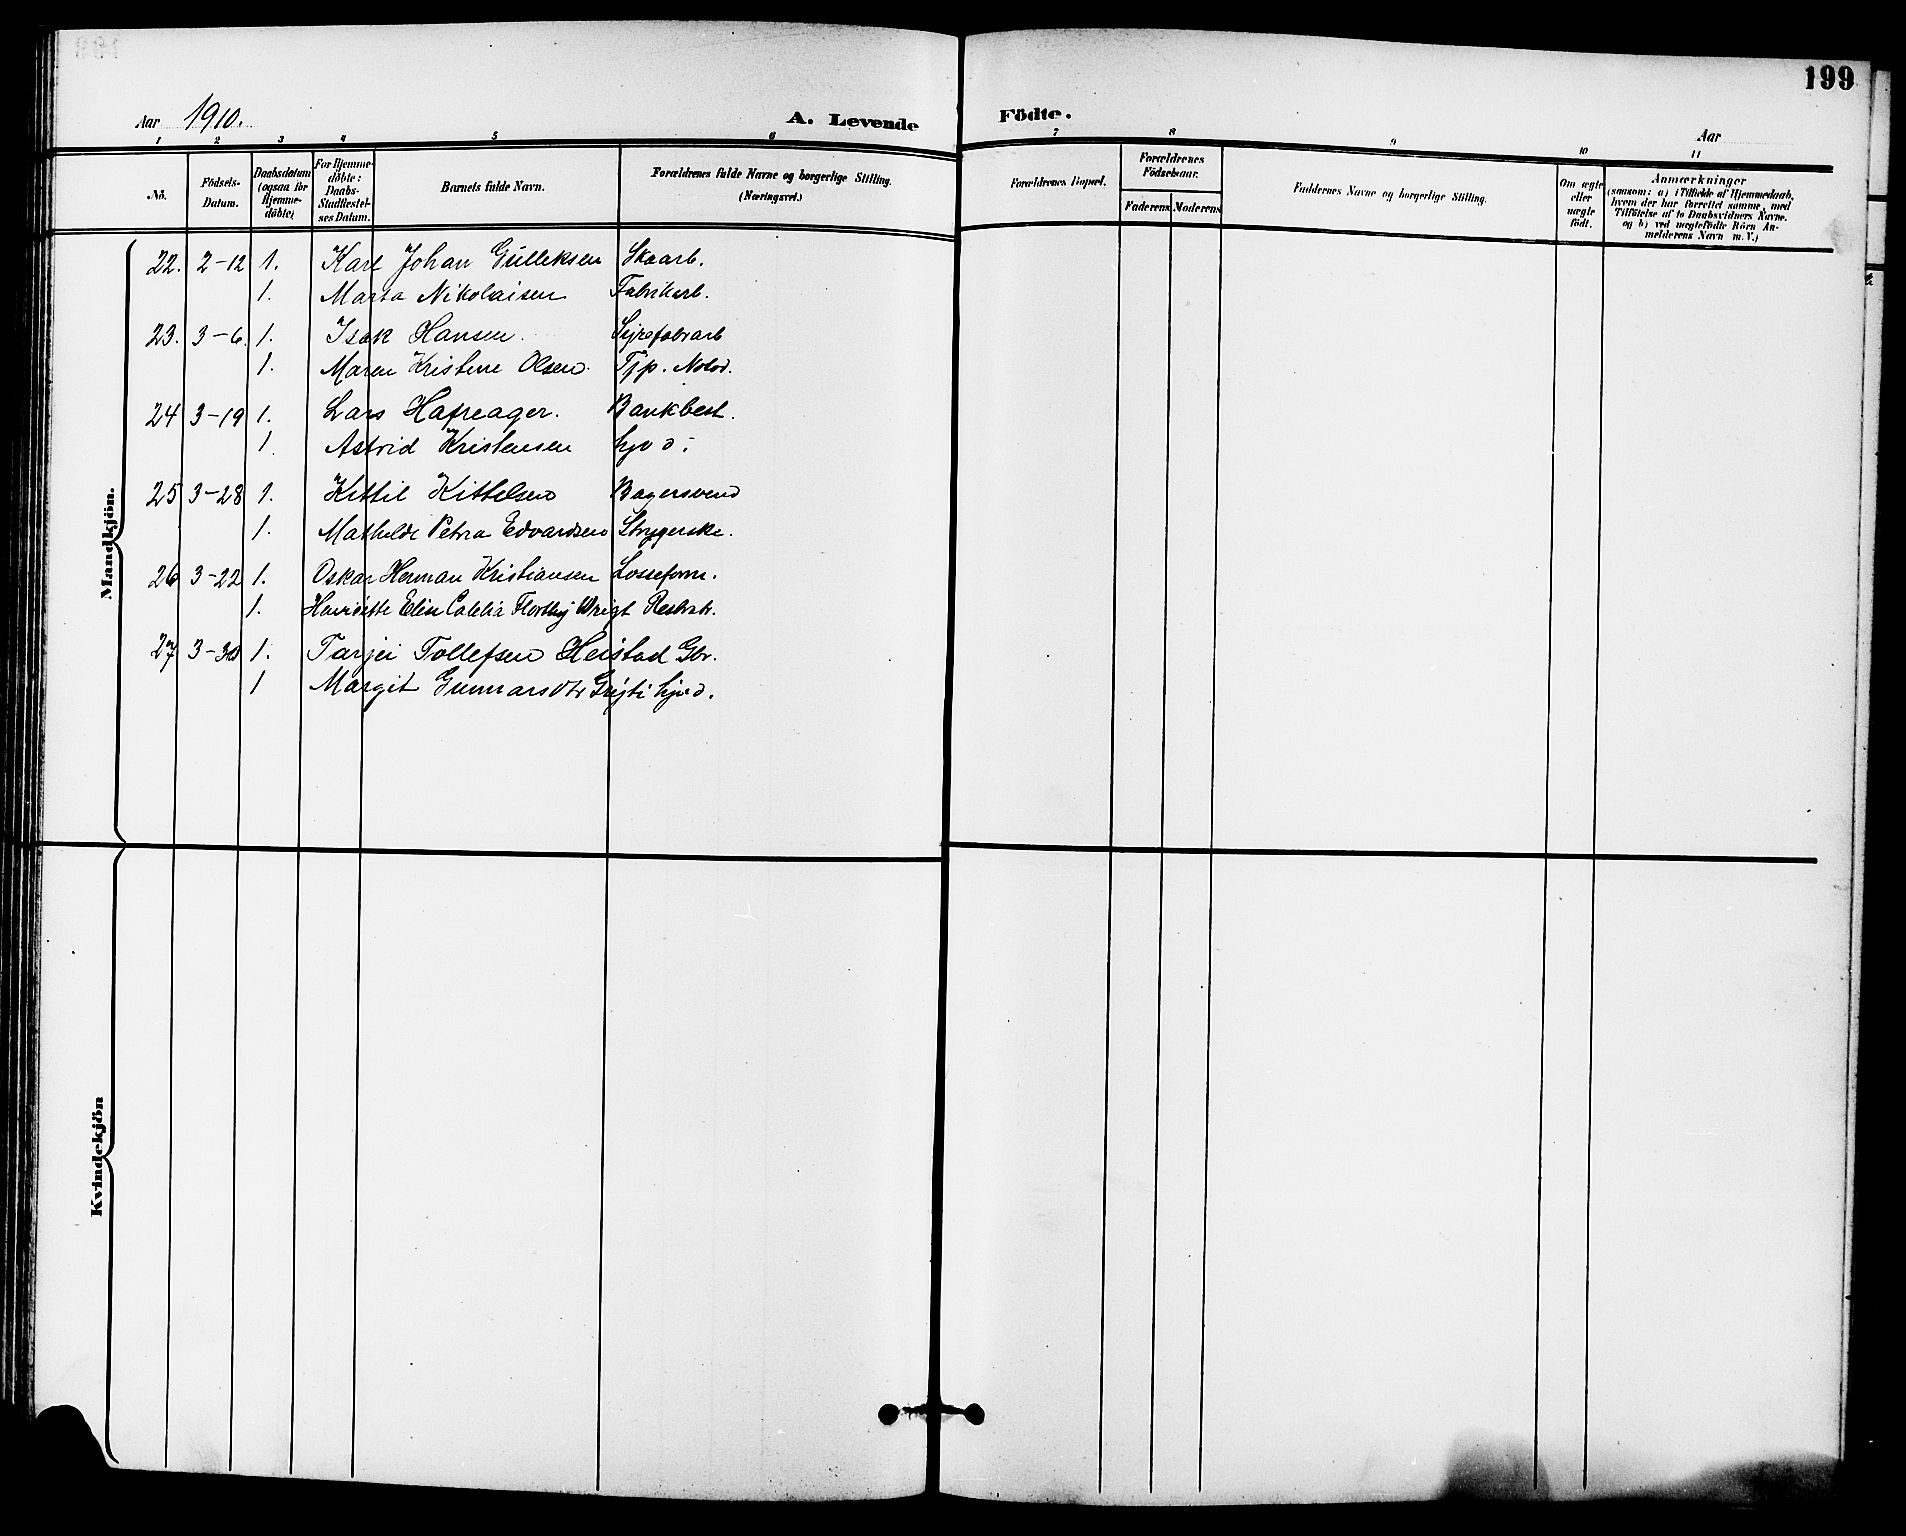 199
Aar 1910.
A. Levende
Födte.
Aar
1 2 3 4 5 6
7 8 9 10 11
No.
Födsels-
Datum.
Daabsdatum
(ogsaa for
Hjemme-
döbte)
For Hjemme-
döbte:
Daabs-
Stadfæstel-
ses Datum.
Barnets fulde Navn.
Forældrenes fulde Navne og borgerlige Stilling.
(Næringsvei.)
Forældrenes Bopæl.
Forældrenes
Födselsaar.
Faderens Moderens
Faddernes Navne og borgerlige Stilling.
Om ægte
eller
uægte
födt.
Anmærkninger
(saasom: a) i Tilfælde af Hjemmedaab,
hvem der har forrettet samme, med
Tilföielse af to Daabsvidners Navne.
og b) ved uægtefödte Börn An-
melderens Navn m. V.)
Mandkjön.
22. 2-12 1. Karl Johan Gulleksen Skoarb.
1. Marta Nikolaisen Fabrikarb.
23. 3-6. 1. Isak Hansen.
1. Maren Kristine Olsen. Tjp. Notod.
24 3-19 1. Lars Hafreager. Bankbest.
1. Astrid Kristensen hjv d.
25 3-28 1. Kittil Kittelsen Bagersvend
1. Mathilde Petra Edvardsen Strygerske.
26 3-22 1. Oskar Herman Kristiansen Losseform.
1. Elin Wrigt
27 3-30 1. Tarjei Tollefsen Heistad Gbr.
1 Margit Gunnarsdtr hjv d.
Kvindekjön